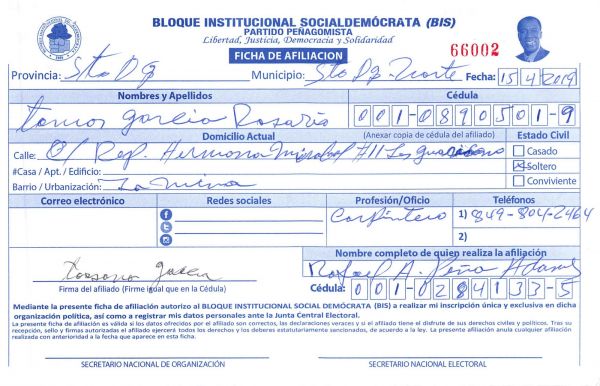 BLOQUE INSTITUCIONAL SOCIALDEMÓCRATA (BIS)
PARTIDO PEÑAGOMISTA
Libertad, Justicia, Democracia y Solidaridad
FICHA DE AFILIACION
66002
Provincia: Sto Dg Municipio: Sto Dg. Norte Fecha: 15/4/2019
Nombres y Apellidos Cédula
Garcia Rosario 001-0890501-9
Domicilio Actual (Anexar copia de cédula del afiliado) Estado Civil
Calle: C/ Rep. Hermana Mirabal #11 Casado
#Casa / Apt. / Edificio: Soltero
Barrio / Urbanización: La mina Conviviente
Correo electrónico Redes sociales Profesión/Oficio Teléfonos
Carpintero 1) 849-804-2464
2)
Nombre completo de quien realiza la afiliación
Rafael A. Peña
Firma del afiliado (Firme igual que en la Cédula) Cédula: 001-0284133-5
Mediante la presente ficha de afiliación autorizo al BLOQUE INSTITUCIONAL SOCIAL DEMÓCRATA (BIS) a realizar mi inscripción única y exclusiva en dicha
organización política, así como a registrar mis datos personales ante la Junta Central Electoral.
La presente ficha de afiliación es válida si los datos ofrecidos por el afiliado son correctos, las declaraciones veraces y si el afiliado tiene el disfrute de sus derechos civiles y políticos. Tras su
recepción, sello y firmas autorizadas el afiliado ejercerá todos los derechos y los deberes estatutariamente sancionados, de acuerdo a la ley. La presente afiliación anula cualquier afiliación
realizada con anterioridad a la fecha que aparece en esta ficha.
SECRETARIO NACIONAL DE ORGANIZACIÓN SECRETARIO NACIONAL ELECTORAL